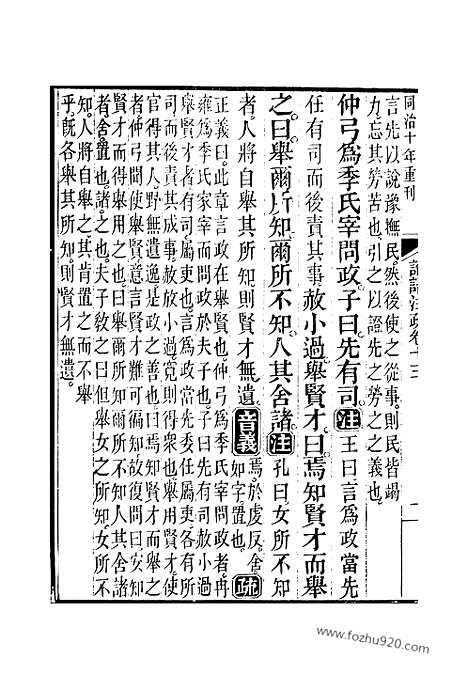 同治十年重刊
論語注疏卷十三
二
言先以說豫撫民然後使之從事則民皆竭
力忘其勞苦也引之以證先之勞之之義也
仲弓爲季氏宰問政子曰先有司注王曰言爲政當先
任有司而後責其事赦小過舉賢才曰焉知賢才而舉
之曰舉爾所知爾所不知人其舍諸注孔曰女所不知
者人將自舉其所知則賢才無遺音義焉於虔反舍
如字置也疏
正義曰此章言政在舉賢也仲弓爲季氏宰問政者冉
雍爲季氏家宰而問政於夫子也子曰先有司赦小過
舉賢才者有司屬吏也言爲政當先委任屬吏各有所
司而後責其成事赦放小過寬則得衆也舉用賢才使
官得其人野無遺逸是政之善也曰焉知賢才而舉之
者仲弓問使舉賢意言賢才難可徧知故復問曰安知
賢才而得舉用之也曰舉爾所知爾所不知人其舍諸
者舍置也諸之也夫子教之曰但舉女之所知女所不
知人將自舉之其肯置之而不舉
乎既各舉其所知則賢才無遺
www.fozhu920.com